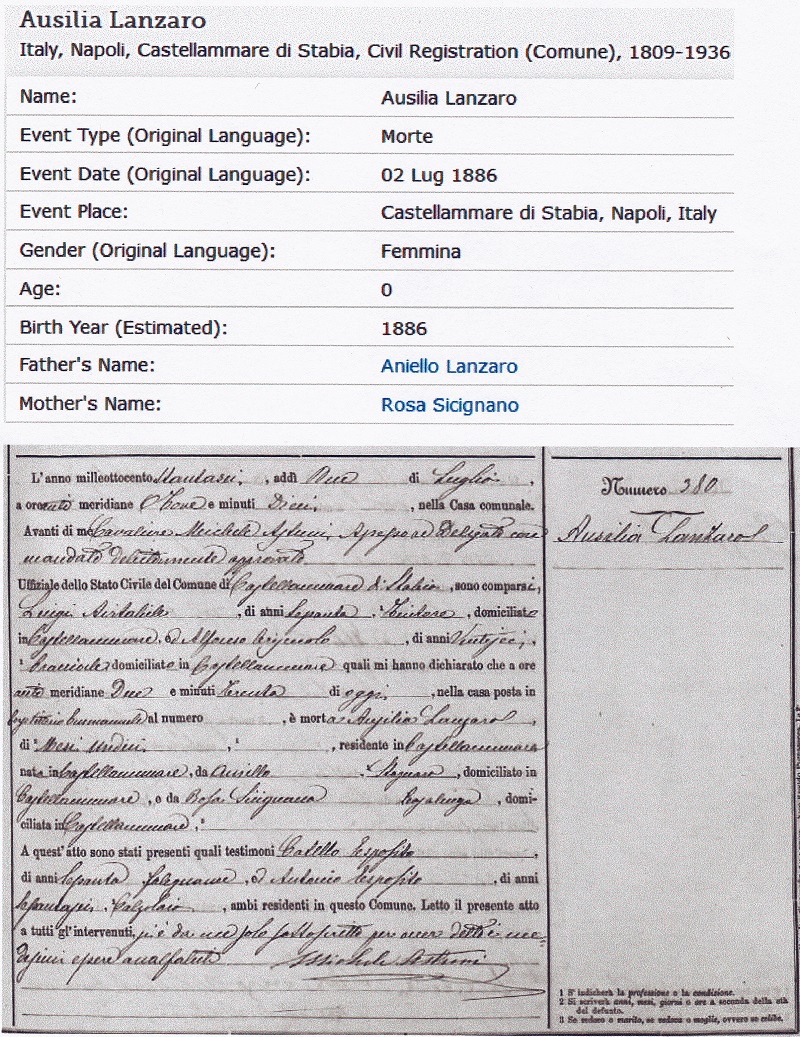 Ausilia Lanzaro
Italy, Napoli, Castellammare di Stabia, Civil Registration (Comune), 1809-1936
Name: Ausilia Lanzaro
Event Type (Original Language): Morte
Event Date (Original Language): 02 Lug 1886
Event Place: Castellammare di Stabia, Napoli, Italy
Gender (Original Language): Femmina
Age: 0
Birth Year (Estimated): 1886
Father's Name: Aniello Lanzaro
Mother's Name: Rosa Sicignano
L'anno milleottocento ottantasei, addì Due di Luglio,
a ore anti meridiane Nove e minuti Dieci, nella Casa comunale.
Avanti di me Cavaliere Michele Assessore Delegato con
mandato debitamente approvato
Uffiziale dello Stato Civile del Comune di Castellammare di Stabia, sono comparsi,
Luigi di anni Sessanta, domiciliato
in Castellammare, e Alfonso di anni
Bracciale domiciliato in Castellammare quali mi hanno dichiarato che a ore
anti meridiane Due e minuti Trenta di oggi, nella casa posta in
Emmanuele al numero , è morta Ausilia Lanzaro,
di Mesi undici, residente in Castellammare
nata in Castellammare, da Aniello domiciliato in
Castellammare, e da Rosa Sicignano Casalinga, domi-
ciliata in Castellammare,
A quest'atto sono stati presenti quali testimoni Catello Esposito,
di anni Sessanta falegname, e Antonio Esposito, di anni
Calzolaio, ambi residenti in questo Comune. Letto il presente atto
a tutti gl'intervenuti, si è da me solo sottoscritto per aver detto i me-
desimi essere analfabeti Michele
Numero 380
Ausilia Lanzaro
1 S'indicherà la professione o la condizione.
2 Si scriverà anni, mesi, giorni o ore a seconda della età
del defunto.
3 Se vedovo o marito, se vedova o moglie, ovvero se celibe.